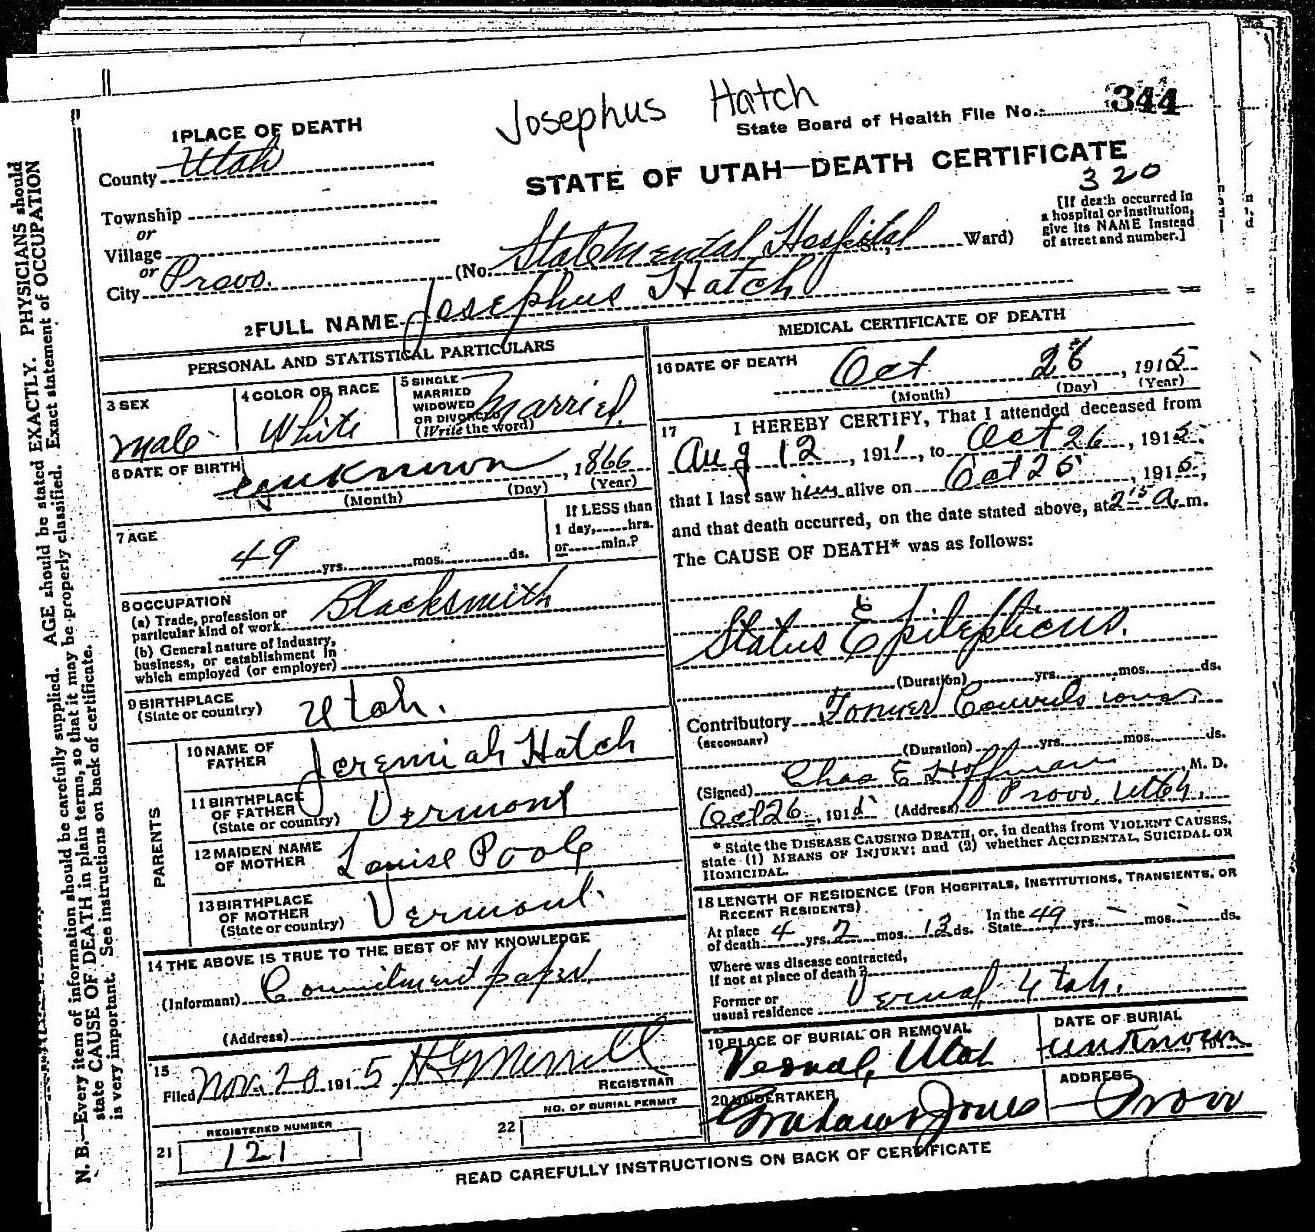 Josephus Hatch
State Board of Health File No. 344
STATE OF UTAH—DEATH CERTIFICATE
320
1 PLACE OF DEATH
County Utah
Township
or
Village
or
City Provo.
(No. State Mental Hospital St., Ward)
[If death occurred in
a hospital or institution,
give its NAME instead
of street and number.]
2 FULL NAME Josephus Hatch
PERSONAL AND STATISTICAL PARTICULARS
3 SEX
Male
4 COLOR OR RACE
White
5 SINGLE
MARRIED
WIDOWED
OR DIVORCED
(Write the word)
Married.
6 DATE OF BIRTH
unknown, 1866
(Month) (Day) (Year)
7 AGE
49 yrs. mos. ds.
If LESS than
1 day, hrs.
or min.?
8 OCCUPATION
(a) Trade, profession or
particular kind of work Blacksmith
(b) General nature of industry,
business, or establishment in
which employed (or employer)
9 BIRTHPLACE
(State or country) Utah.
PARENTS
10 NAME OF
FATHER Jeremiah Hatch
11 BIRTHPLACE
OF FATHER
(State or country) Vermont
12 MAIDEN NAME
OF MOTHER Louise Poole
13 BIRTHPLACE
OF MOTHER
(State or country) Vermont.
14 THE ABOVE IS TRUE TO THE BEST OF MY KNOWLEDGE
(Informant) Commitment paper
(Address)
15
Filed Nov. 20 1915 H G Merrill
REGISTRAR
REGISTERED NUMBER
21 121
NO. OF BURIAL PERMIT
22
MEDICAL CERTIFICATE OF DEATH
16 DATE OF DEATH Oct 26, 1915
(Month) (Day) (Year)
17 I HEREBY CERTIFY, That I attended deceased from
Aug 12, 1911, to Oct 26, 1915,
that I last saw him alive on Oct 25, 1915,
and that death occurred, on the date stated above, at 2 15 A. m.
The CAUSE OF DEATH* was as follows:
Status Epilepticus.
(Duration) yrs. mos. ds.
Contributory Former Convulsions
(SECONDARY)
(Duration) yrs. mos. ds.
(Signed) Chas E Hoffman, M. D.
Oct 26, 1915 (Address) Provo, Utah.
* State the DISEASE CAUSING DEATH, or, in deaths from VIOLENT CAUSES,
state (1) MEANS OF INJURY; and (2) whether ACCIDENTAL, SUICIDAL OR
HOMICIDAL.
18 LENGTH OF RESIDENCE (FOR HOSPITALS, INSTITUTIONS, TRANSIENTS, OR
RECENT RESIDENTS)
At place
of death 4 yrs. 2 mos. 13 ds.
In the
State 49 yrs. - mos. - ds.
Where was disease contracted,
if not at place of death?
Former or
usual residence Vernal Utah.
19 PLACE OF BURIAL OR REMOVAL
Vernal, Utah
DATE OF BURIAL
unknown
20 UNDERTAKER
Graham & Jones
ADDRESS
Provo
READ CAREFULLY INSTRUCTIONS ON BACK OF CERTIFICATE
N. B.—Every item of information should be carefully supplied. AGE should be stated EXACTLY. PHYSICIANS should
state CAUSE OF DEATH in plain terms, so that it may be properly classified. Exact statement of OCCUPATION
is very important. See instructions on back of certificate.